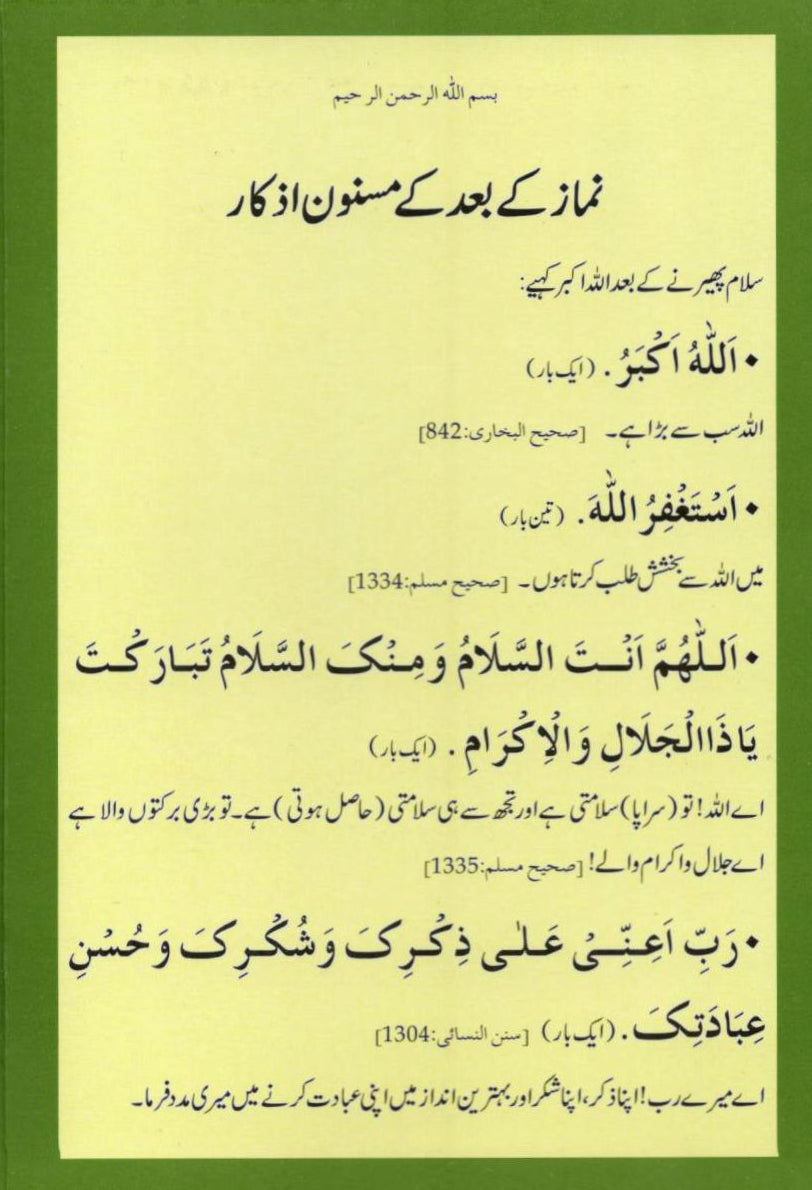 بسم الله الرحمن الرحيم
نماز کے بعد کے مسنون اذکار
سلام پھیرنے کے بعد اللہ اکبر کہیے:
• اَللّٰهُ اَکْبَرُ . (ایک بار)
اللہ سب سے بڑا ہے۔ [صحیح البخاری:842]
• اَسْتَغْفِرُ اللّٰهَ. (تین بار)
میں اللہ سے بخشش طلب کرتا ہوں۔ [صحیح مسلم:1334]
• اَللّٰهُمَّ اَنْتَ السَّلَامُ وَمِنْکَ السَّلَامُ تَبَارَکْتَ
یَاذَاالْجَلَالِ وَالْاِکْرَامِ . (ایک بار)
اے اللہ! تو (سراپا) سلامتی ہے اور تجھ سے ہی سلامتی (حاصل ہوتی) ہے۔ تو بڑی برکتوں والا ہے
اے جلال و اکرام والے! [صحیح مسلم:1335]
• رَبِّ اَعِنِّیْ عَلٰی ذِکْرِکَ وَشُکْرِکَ وَحُسْنِ
عِبَادَتِکَ . (ایک بار) [سنن النسائی:1304]
اے میرے رب! اپنا ذکر، اپنا شکر اور بہترین انداز میں اپنی عبادت کرنے میں میری مدد فرما۔